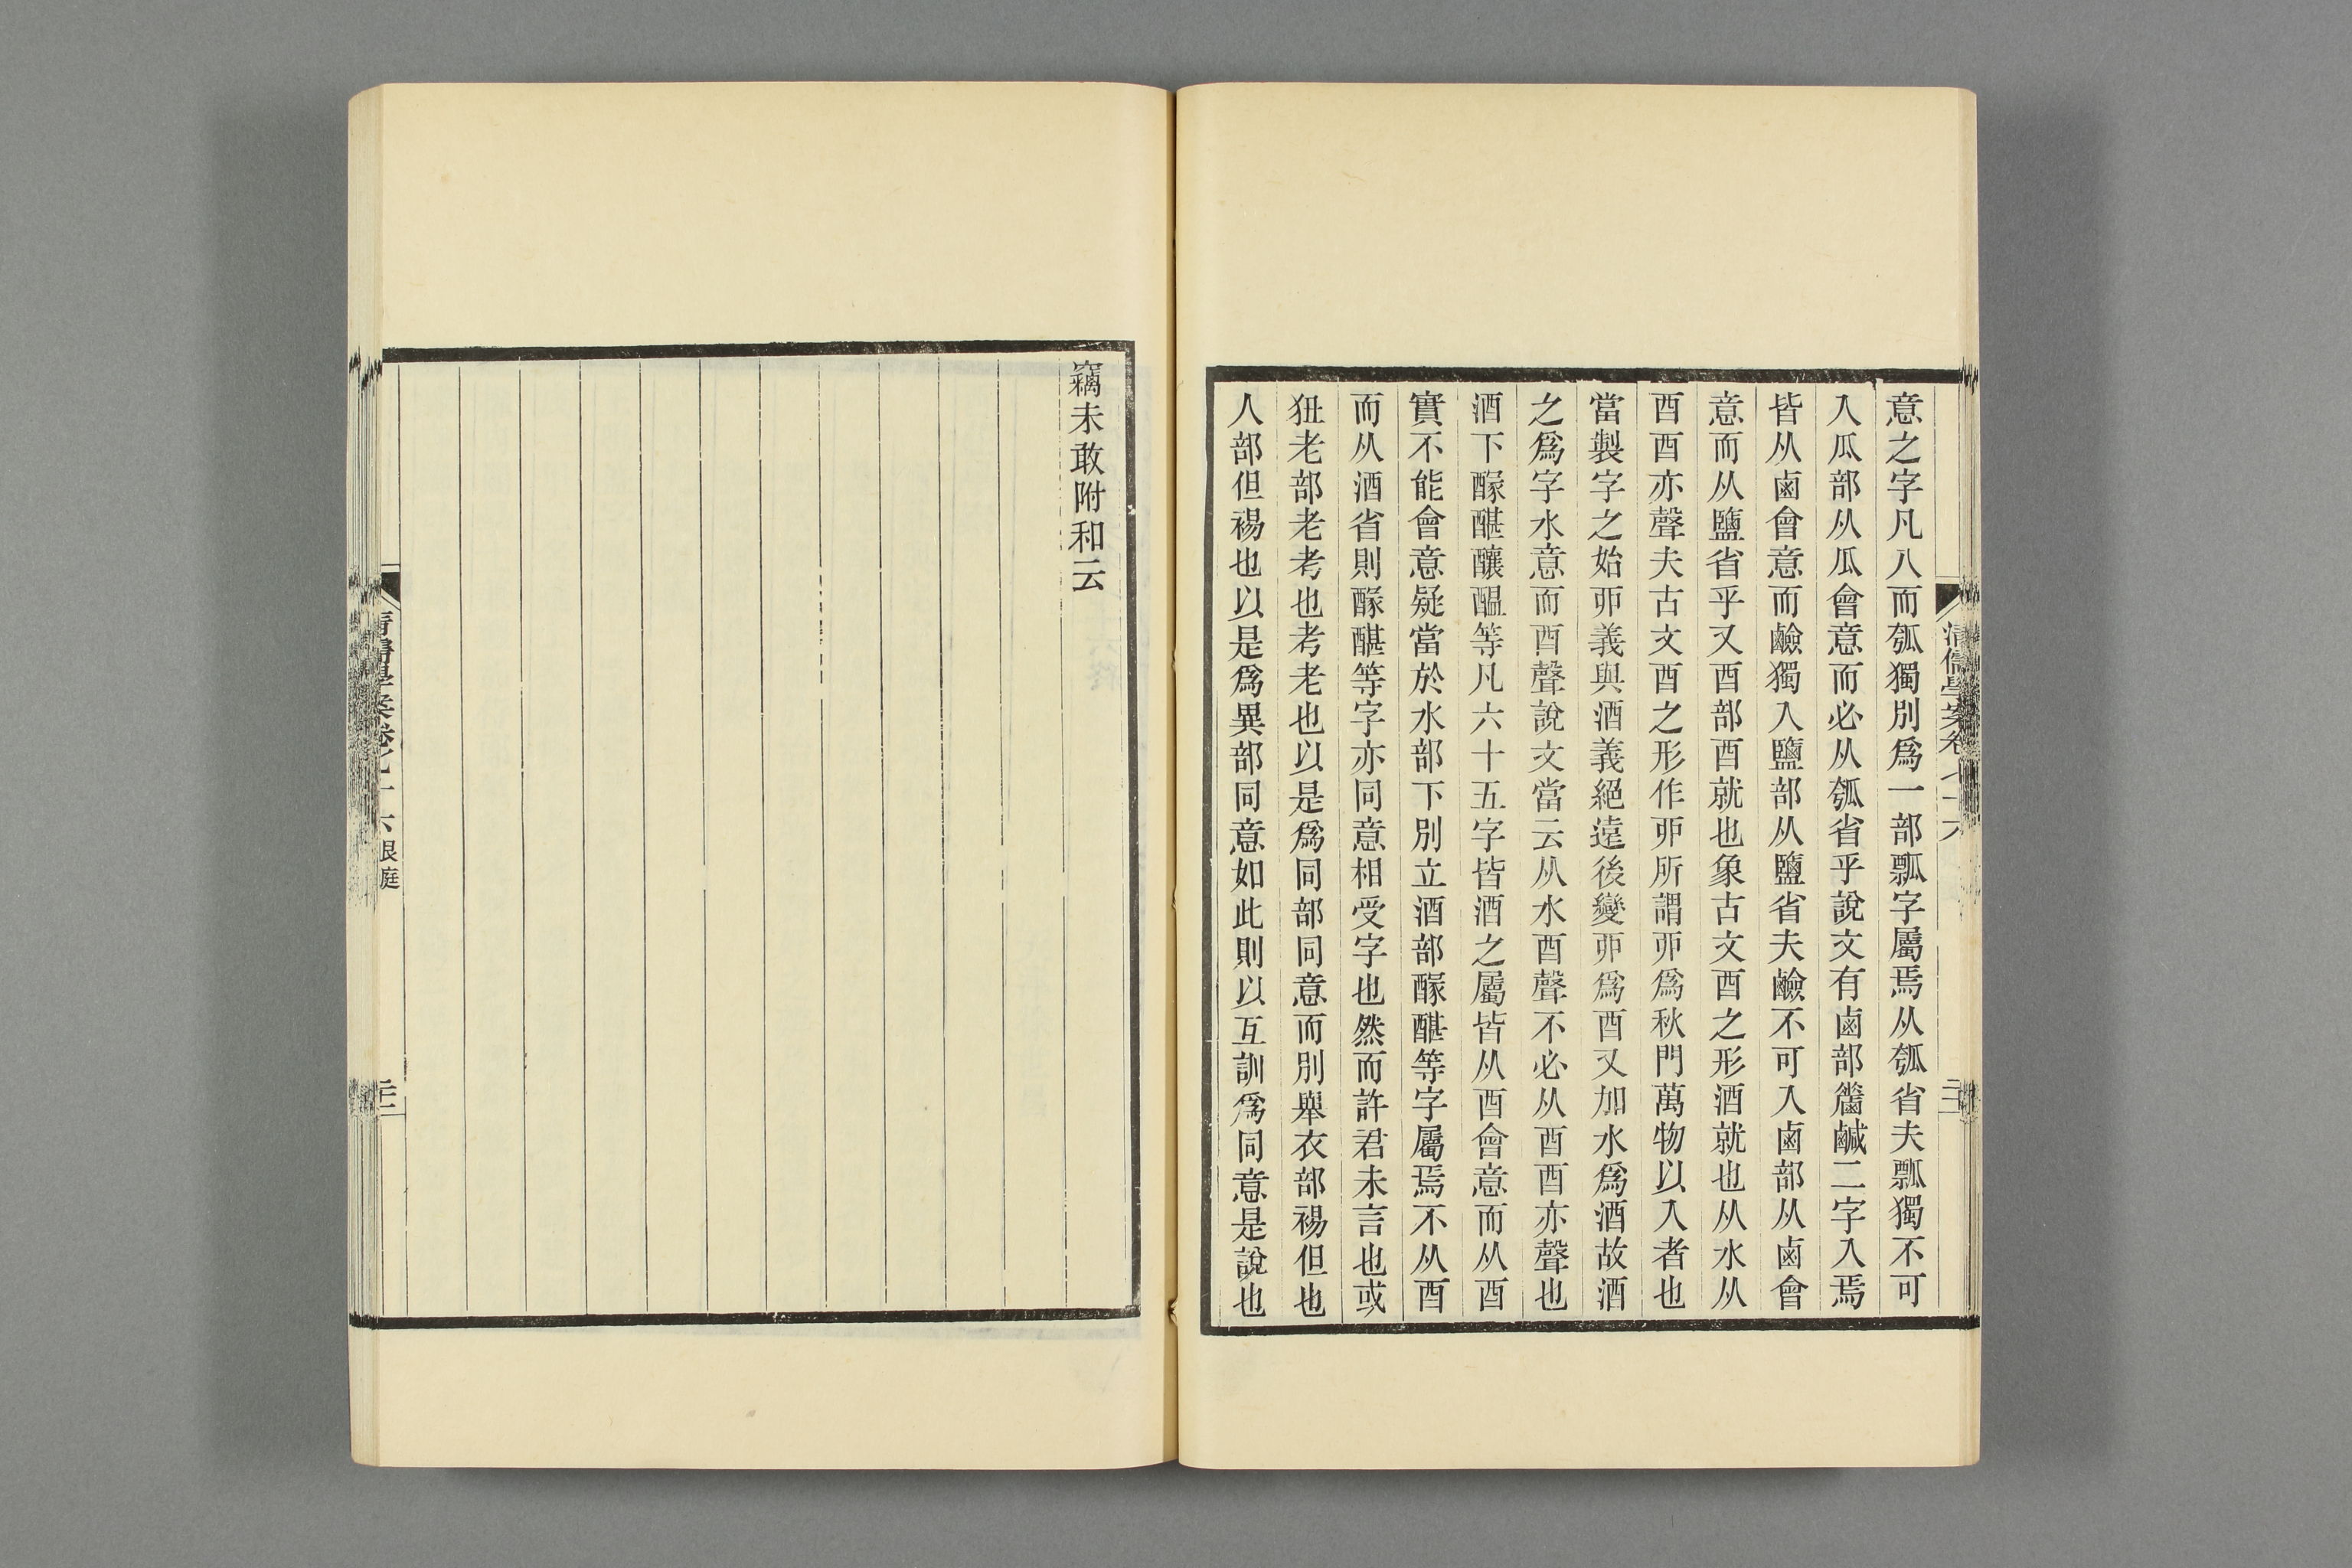 意之字凡八而瓠獨別爲一部瓢字屬焉从瓠省夫瓢獨不可
入瓜部从瓜會意而必从瓠省乎說文有鹵部䴝鹹二字入焉
皆从鹵會意而鹼獨入鹽部从鹽省夫鹼不可入鹵部从鹵會
意而从鹽省乎又酉部酉就也象古文酉之形酒就也从水从
酉酉亦聲夫古文酉之形作丣所謂丣爲秋門萬物以入者也
當製字之始丣義與酒義絕遠後變丣爲酉又加水爲酒故酒
之爲字水意而酉聲說文當云从水酉聲不必从酉酉亦聲也
酒下醿醚釀醞等凡六十五字皆酒之屬皆从酉會意而从酉
實不能會意疑當於水部下別立酒部等字屬焉不从酉
而从酒省則等字亦同意相受字也然而許君未言也或
狃老部老考也考老也以是爲同部同意而別舉衣部裼但也
人部但裼也以是爲異部同意如此則以互訓爲同意是說也
竊未敢附和云
清儒學案卷七十六
艮庭